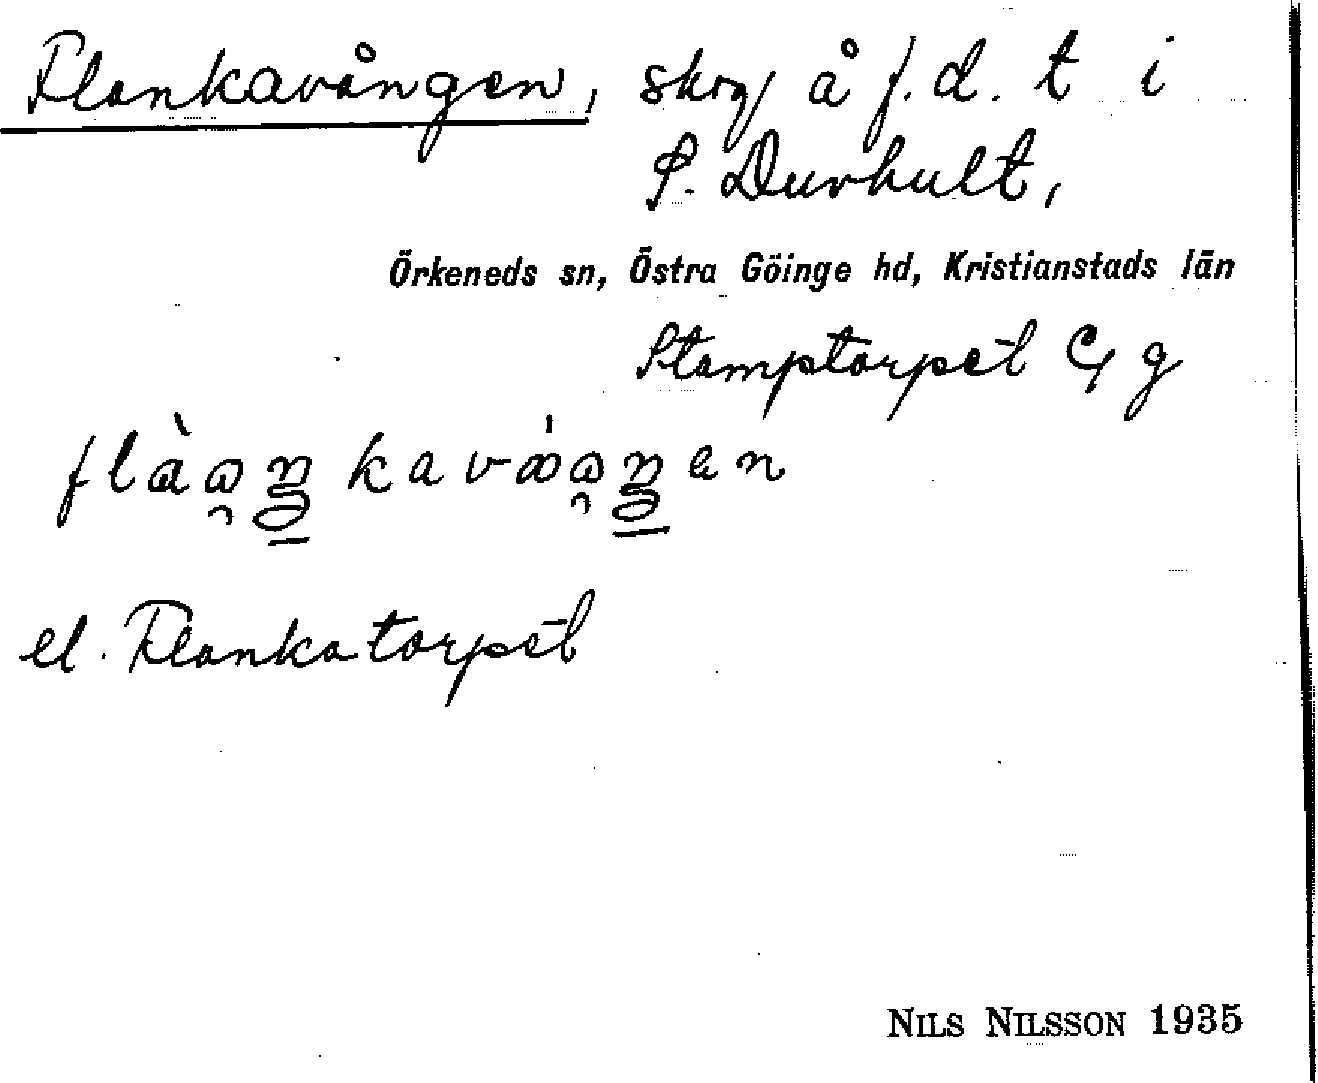 Flankavången, skog å f.d. t i
S. Durhult,
Örkeneds sn, Östra Göinge hd, Kristianstads län
Stamptorpet C, g
el. Flankatorpet
NILS NILSSON 1935